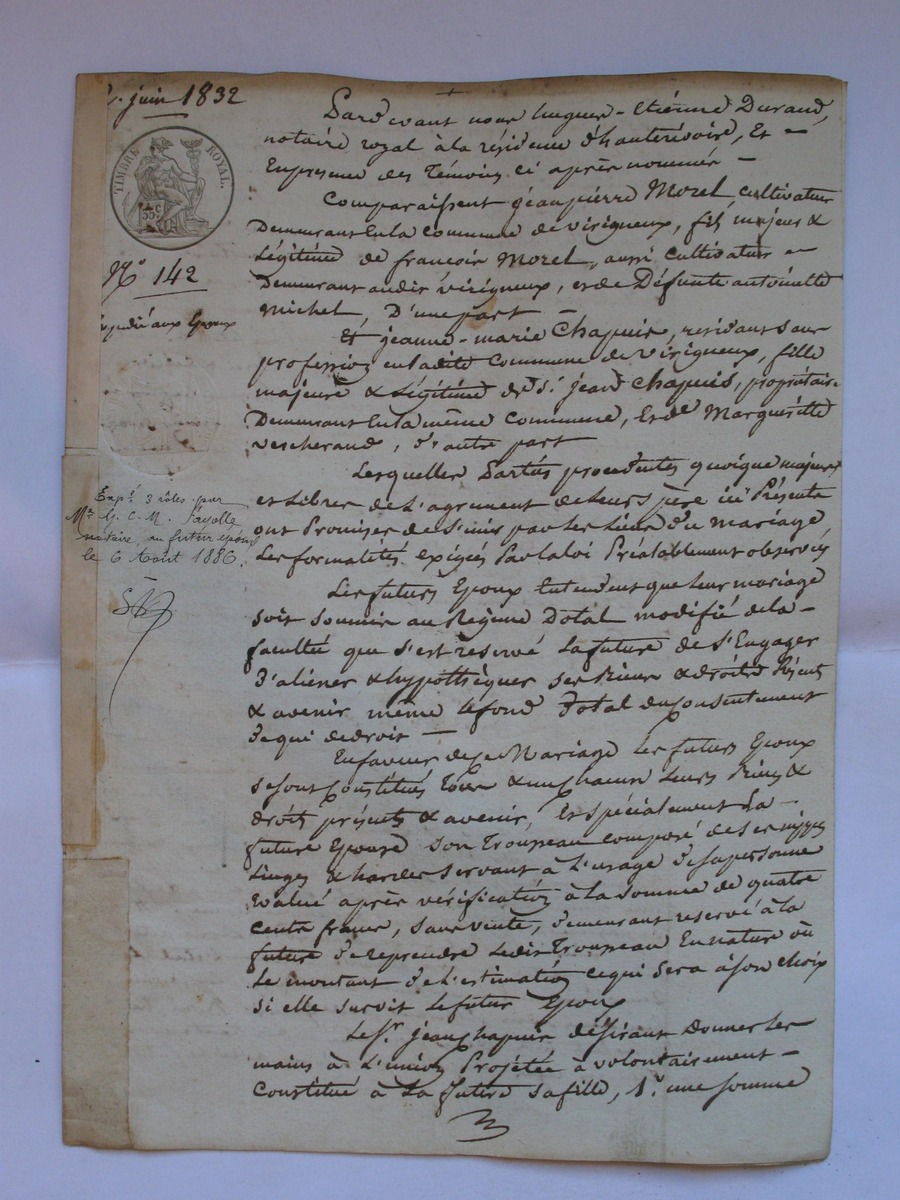 juin 1832
TIMBRE ROYAL.
35 C
N° 142
aux Epoux
Exp.é 3 rôles par
Mre G. C. M. Payolle
notaire, au futur époux
le 6 Août 1886.
Pardevant nous hugues-Etiénne Durand,
notaire royal à la résidence d'hauterivoire, Et
Enpresence des Témoins ci après nommés
Comparaissent jeanpierre Morel cultivateur
Demeurant Enla commune de virigneux, fils majeur &
Légitime de francois Morel, aussi cultivateur
Demeurant audit virigneux, et de Défunte antoinette
michel, D'une part
Et jeanne-marie Chapuis, residant sans
profession enladite Commune de virigneux, fille
majeure & Légitime de Sr. jean Chapuis, propriétaire
Demeurant Enla même commune, Et de Margueritte
vescherand, d'autre part
Lesquelles Parties procedentes quoique majeures
et Libres de L'agrement de Leurs père ici Présents
ont Promises de S'unir par les Liens du mariage,
Les formalités exigées Parlaloi Préalablement observées
Les futurs Epoux Entendent que Leur mariage
soit soumis au Régime Dotal modifié dela
faculté que s'est reservé La future de S'Engager
D'aliéner & hypothéquer ses biens & droits Présents
& avenir même lefond Dotal du Consentement
de qui de droit
Enfaveur de ce Mariage Les futurs Epoux
sesont Constitués Tous & un Chacun Leurs Biens &
droits présents & avenir, Et spécialement La
future Epouse son Trousseau composé de ses nippes
Linges & hardes servant à L'usage de sa personne
Evalué après vérification à la somme de quatre
cents francs, sans vente, demeurant reservé à la
future de reprendre Ledit Trousseau En nature ou
Le montant de L'estimation cequi sera àson choix
si elle survit Lefutur Epoux
Lesr. jean Chapuis désirant Donner les
mains à L'union Projétée à volontairement
Constitué à La future safille, 1°. une somme